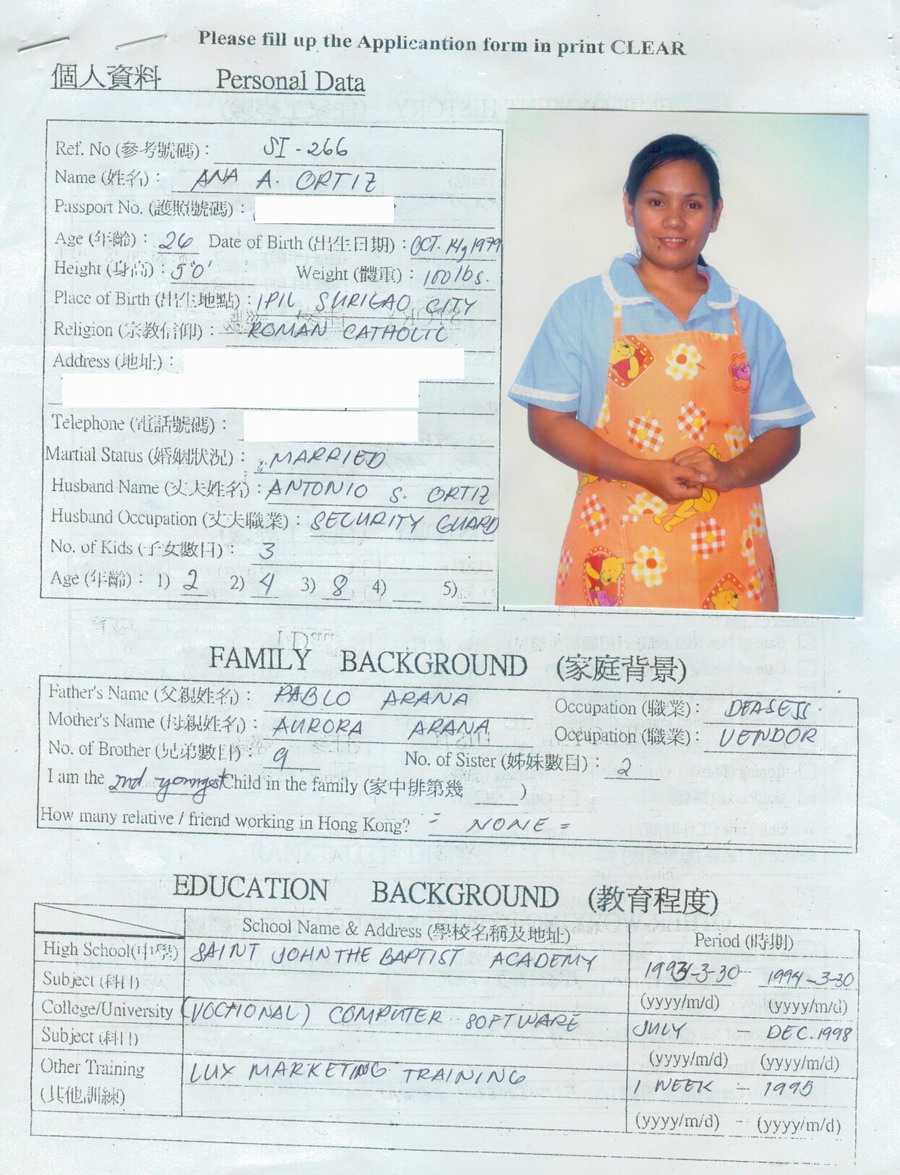 Please fill up the Applicantion form in print CLEAR
個人資料 Personal Data
Ref. No (參考號碼) : SI - 266
Name (姓名) : ANA A. ORTIZ
Passport No. (護照號碼) :
Age (年齡) : 26 Date of Birth (出生日期) : OCT. 14, 1979
Height (身高) : 5'0' Weight (體重) : 100 lbs.
Place of Birth (出生地點) : IPIL SURIGAO CITY
Religion (宗教信仰) : ROMAN CATHOLIC
Address (地址) :
Telephone (電話號碼) :
Martial Status (婚姻狀況) : MARRIED
Husband Name (丈夫姓名) : ANTONIO S. ORTIZ
Husband Occupation (丈夫職業) : SECURITY GUARD
No. of Kids (子女數目) : 3
Age (年齡) : 1) 2 2) 4 3) 8 4) 5)
FAMILY BACKGROUND (家庭背景)
Father's Name (父親姓名) : PABLO ARANA Occupation (職業) :
Mother's Name (母親姓名) : AURORA ARANA Occupation (職業) : VENDOR
No. of Brother (兄弟數目) : 9 No. of Sister (姊妹數目) : 2
I am the 2nd youngest Child in the family (家中排第幾 )
How many relative / friend working in Hong Kong? = NONE =
EDUCATION BACKGROUND (教育程度)
School Name & Address (學校名稱及地址) Period (時期)
High School(中學) SAINT JOHN THE BAPTIST ACADEMY 1993-3-30 - 1994-3-30
Subject (科目) (yyyy/m/d) (yyyy/m/d)
College/University (VOCTIONAL) COMPUTER SOFTWARE JULY - DEC. 1998
Subject (科目) (yyyy/m/d) (yyyy/m/d)
Other Training LUX MARKETING TRAINING 1 WEEK - 1995
(其他訓練) (yyyy/m/d) (yyyy/m/d)